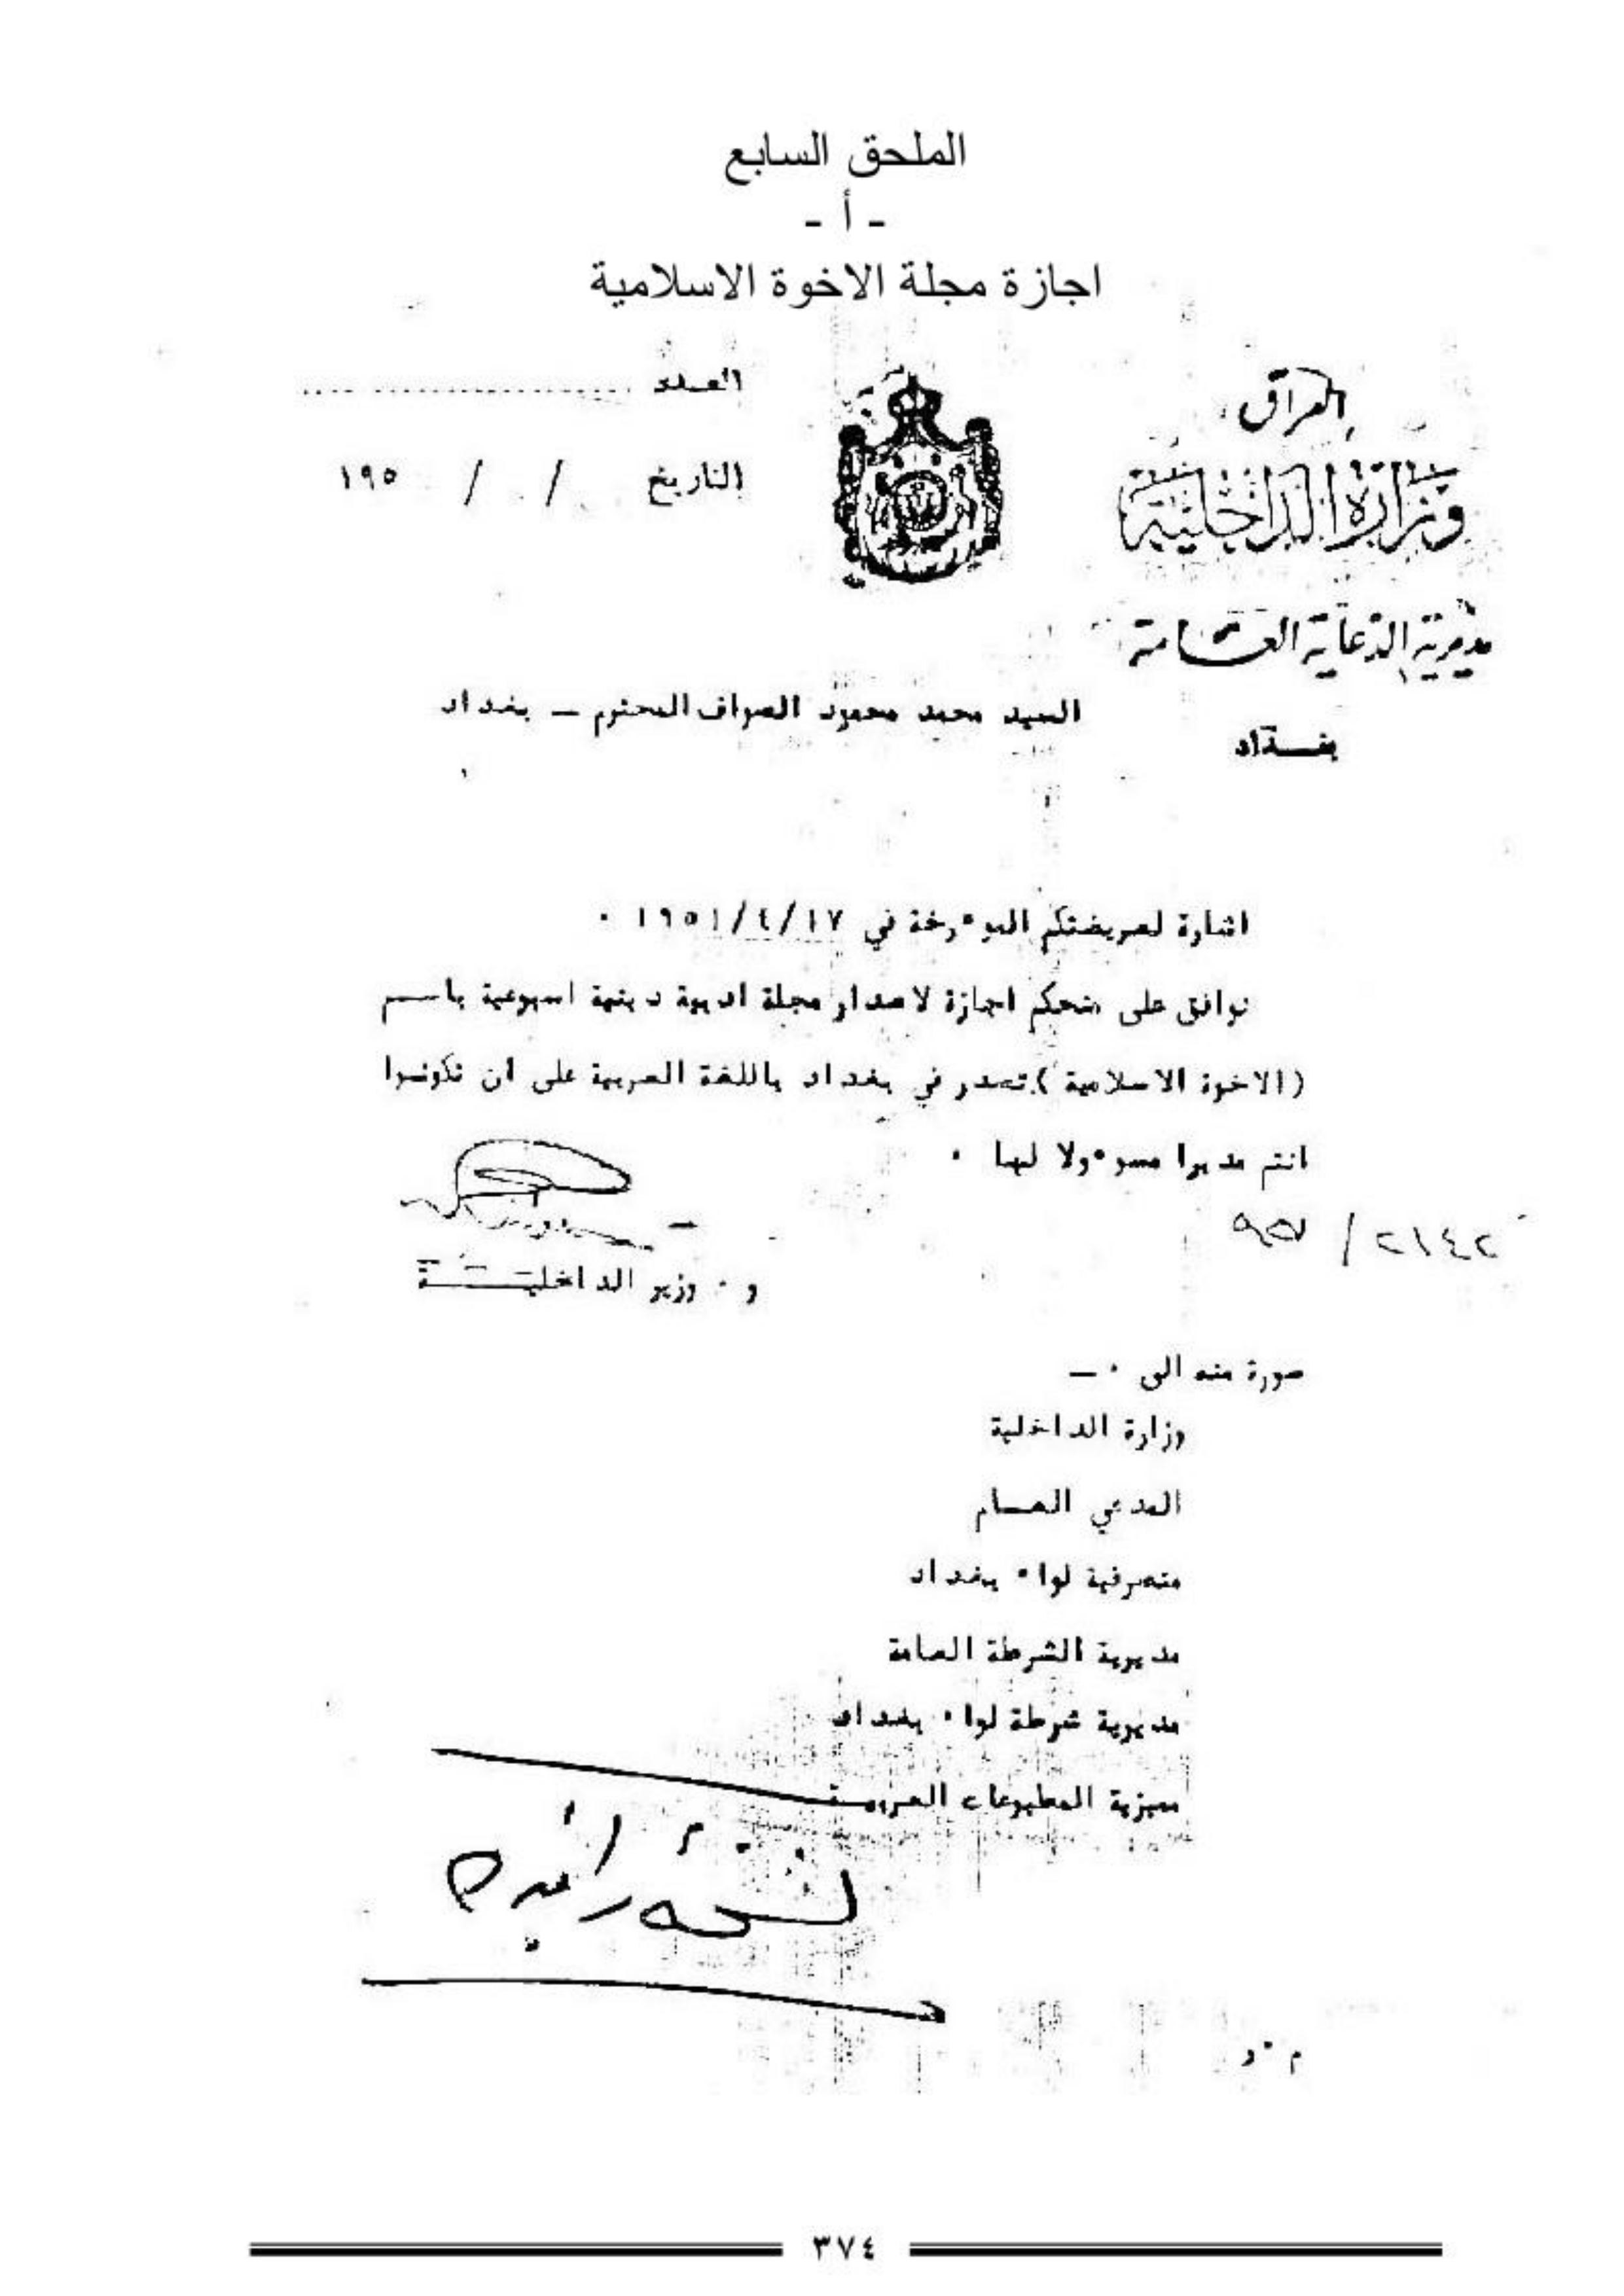 الملحق السابع
- أ -
اجازة مجلة الاخوة الاسلامية
العراق
وزارة الداخلية
مديرية الدعاية العامة
بغداد
العدد ........................
التاريخ / / ١٩٥
السيد محمد محمود الصواف المحترم — بغداد
اشارة لعريضتكم الموءرخة في ١٩٥١/٤/١٧ ٠
نوافق على منحكم اجازة لاصدار مجلة ادبية دينية اسبوعية باسم
(الاخوة الاسلامية ) تصدر في بغداد باللغة العربية على ان تكونوا
انتم مديرا مسوءولا لها ٠
و ٠ وزير الداخلية
صورة منه الى ٠ —
وزارة الداخلية
المدعي العام
متصرفية لواء بغداد
مديرية الشرطة العامة
مديرية شرطة لواء بغداد
مميزية المطبوعات العربية
نسخة زائدة
م ٠ و
٣٧٤